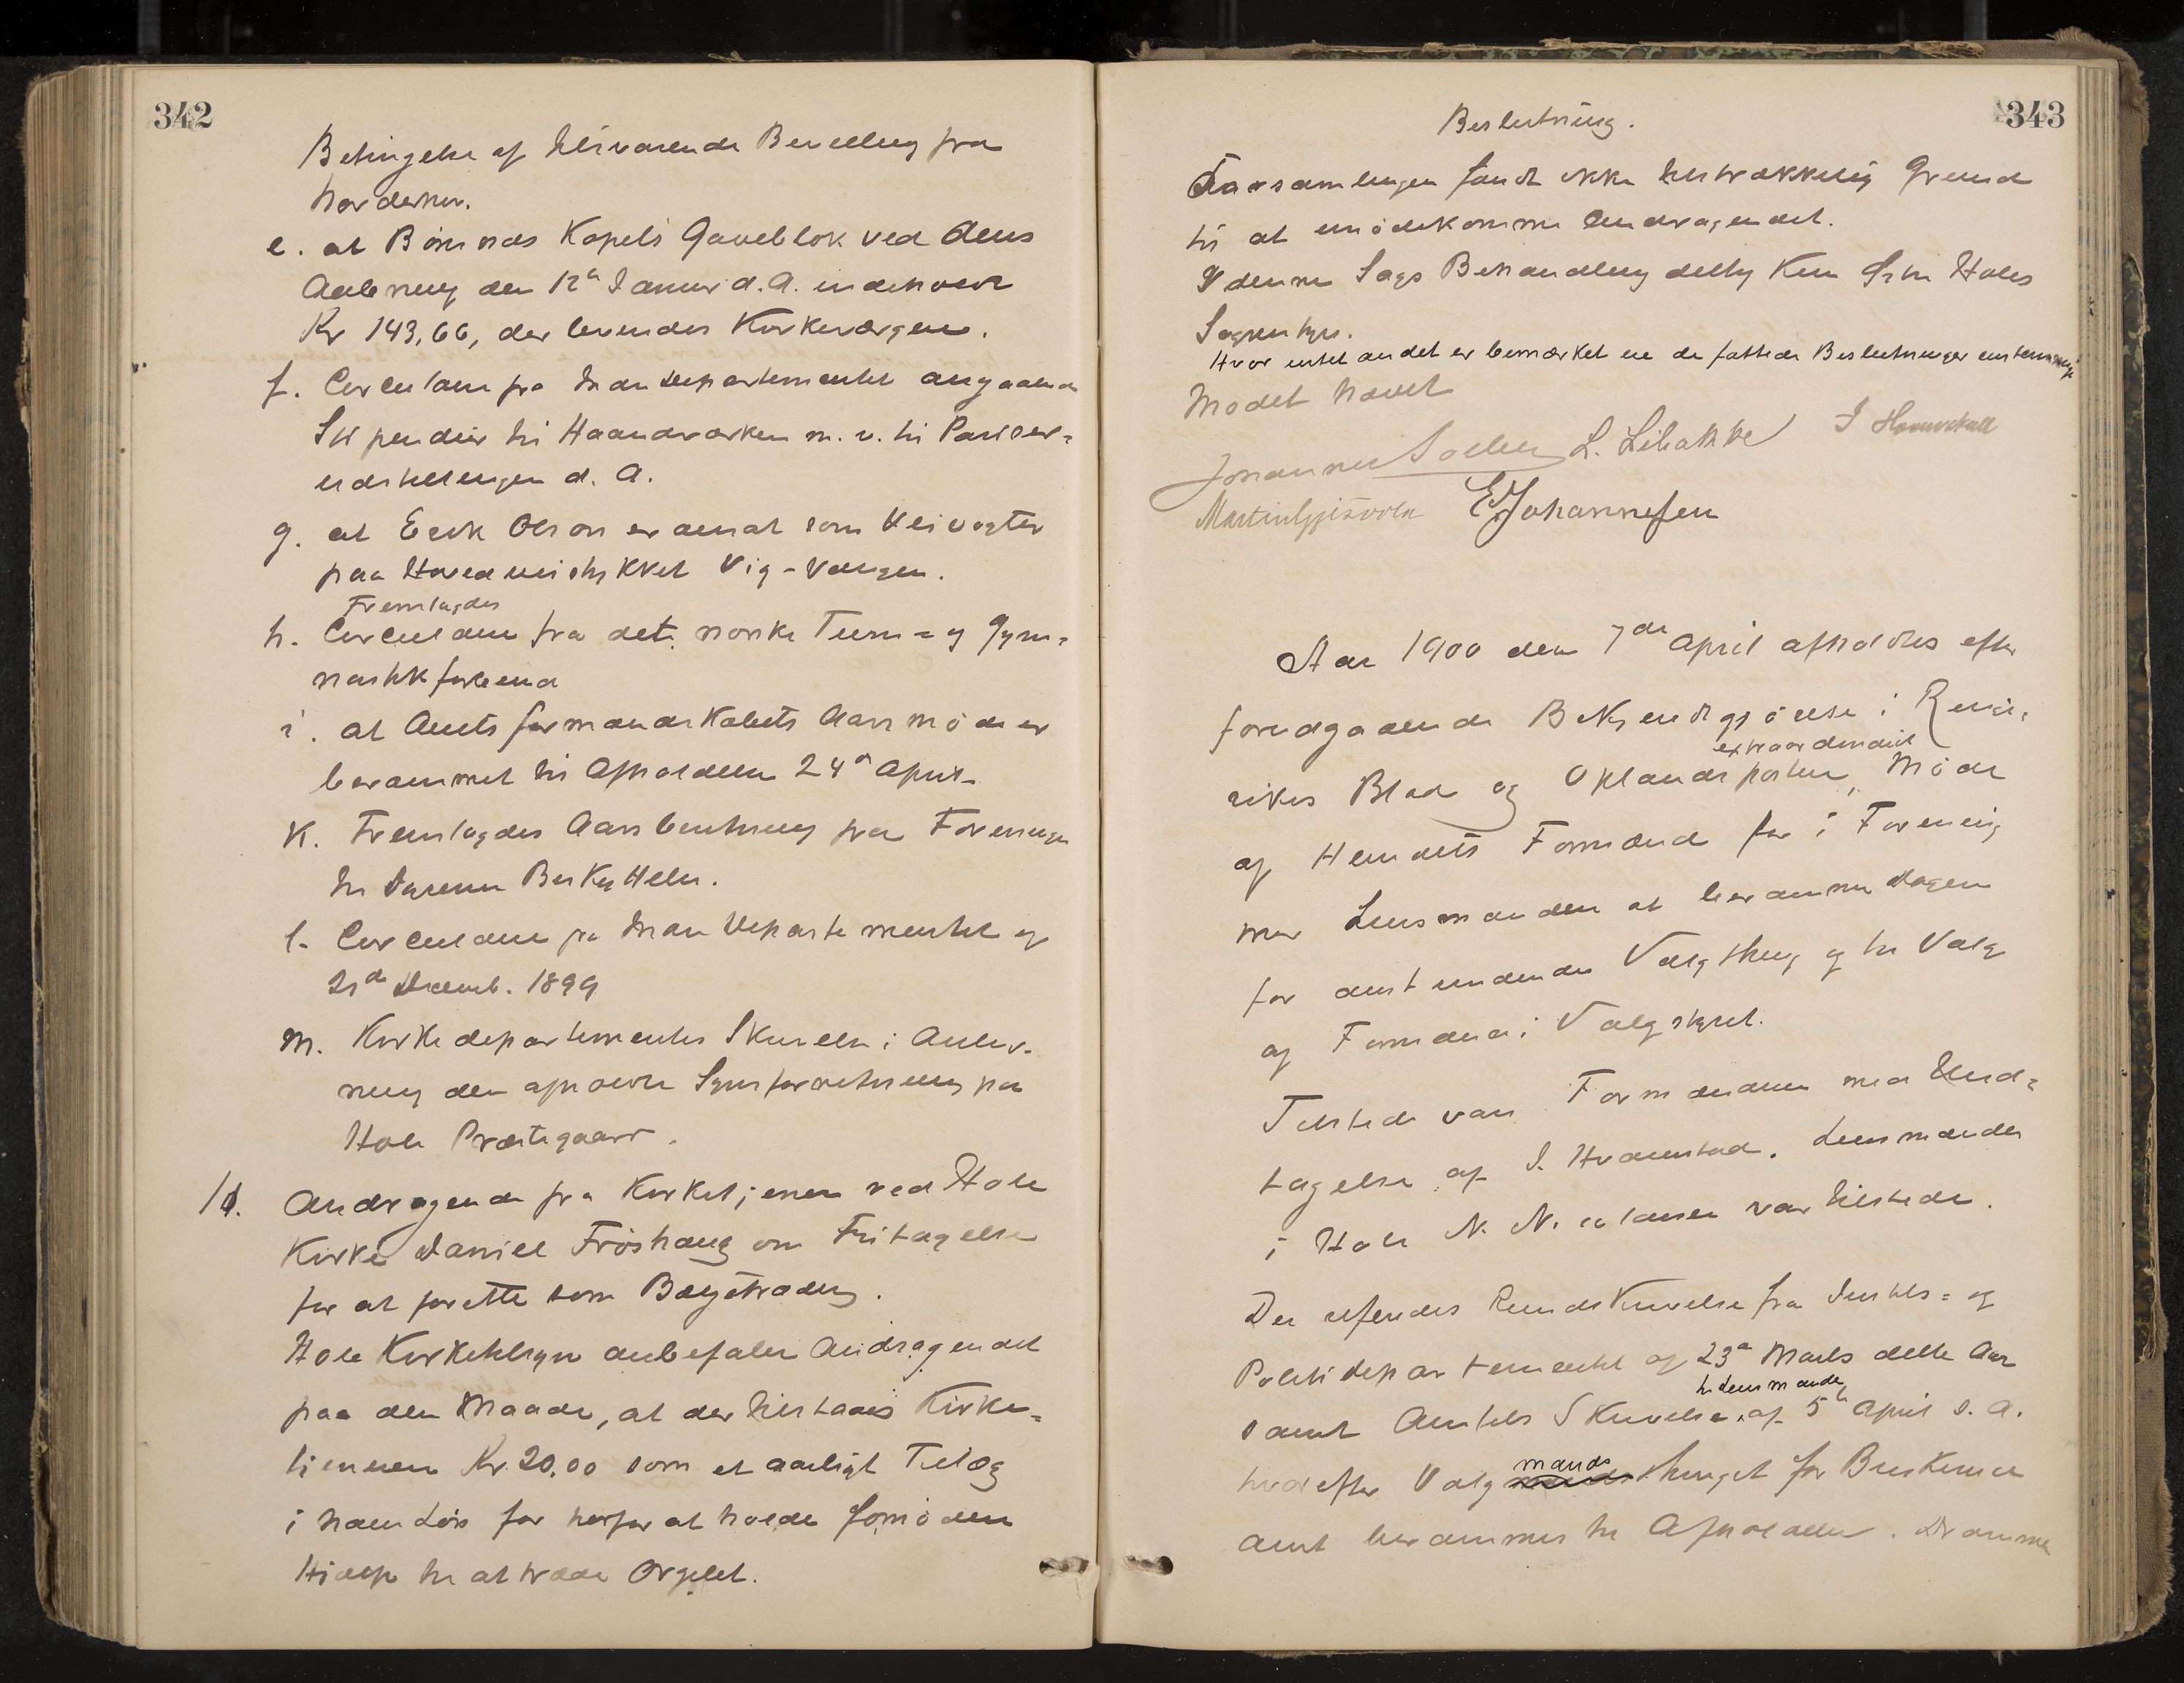 342
Betingelse af tilsvarende Bevilling fra
Norderhov.
e. at Bönsnæs Kapels Gaveblok ved dens
Aabning den 12te Januar d. A. indeholdt
Kr 143,66, der leveredes Kirkeværgen.
f. Circulære fra Indre Departementet angaaende
Stipendier til Haandværkere m. v. til Pariser=
udstillingen d. A.
g. at Erik Olson er ansat som Veivogter
paa Hovedveistykket Vig - Vangen.
Fremlagdes
h. Circulære fra det norske Turn= og Gym=
nastikforbund
i. at Amtsformandskabets Aarsmöde er
berammet til Afholdelse 24de April.
K. Fremlagdes Aarsberetning fra Foreningen
til Dyrenes Beskyttelse.
l. Circulære fra Indre Departementet af
21de Decemb. 1899
m. Kirkedepartementets Skrivelse i Anled-
ning den afholdte Synsforretning paa
Hole Præstegaard.
10. Andragende fra Kirketjener ved Hole
Kirke Daniel Fröshaug om Fritagelse
for at forrette som Bælgtræder.
Hole Kirketilsyn anbefaler Andragendet
paa den Maade, at der tilstaaes Kirke=
tjeneren Kr. 20,00 som et aarligt Tillæg
i hans Lön for herfor at holde fornöden
Hjælp til at træde Orgelet.
343
Beslutning.
Forsamlingen fandt ikke tilstrækkelig Grund
til at imödekomme Andragendet.
I denne Sags Behandling deltog Kun Hole
Sogns
Hvor intet andet er bemærket ere de fattede Beslutninger enstemmige
Mödet hævet
Johannes Sollien L. Libakke
Martin Gjesvold E Johannesen
Aar 1900 den 7de April afholdtes efter
foregaaende Bekjendtgjörelse i Ringe=
extraordinært
rikes Blad og Oplandsposten, Möde
af Herredets Formænd for i Forening
med Lensmanden at beramme Dagen
for anstundende Valgthing og til Valg
af Formænd i Valgstyret.
Tilstede var Formændene med Und=
tagelse af I. Hvamstad. Lensmanden
i Hole N. Nielsen var tilstede.
Der refereredes Rundskrivelse fra Justits= og
Politidepartementet af 23de Marts dette Aar
til Lensmanden
samt Amtets Skrivelse af 5te April s. A.
mands
hvorefter Valgthinget for Buskerud
Amt berammes til Afholdelse. Drammen